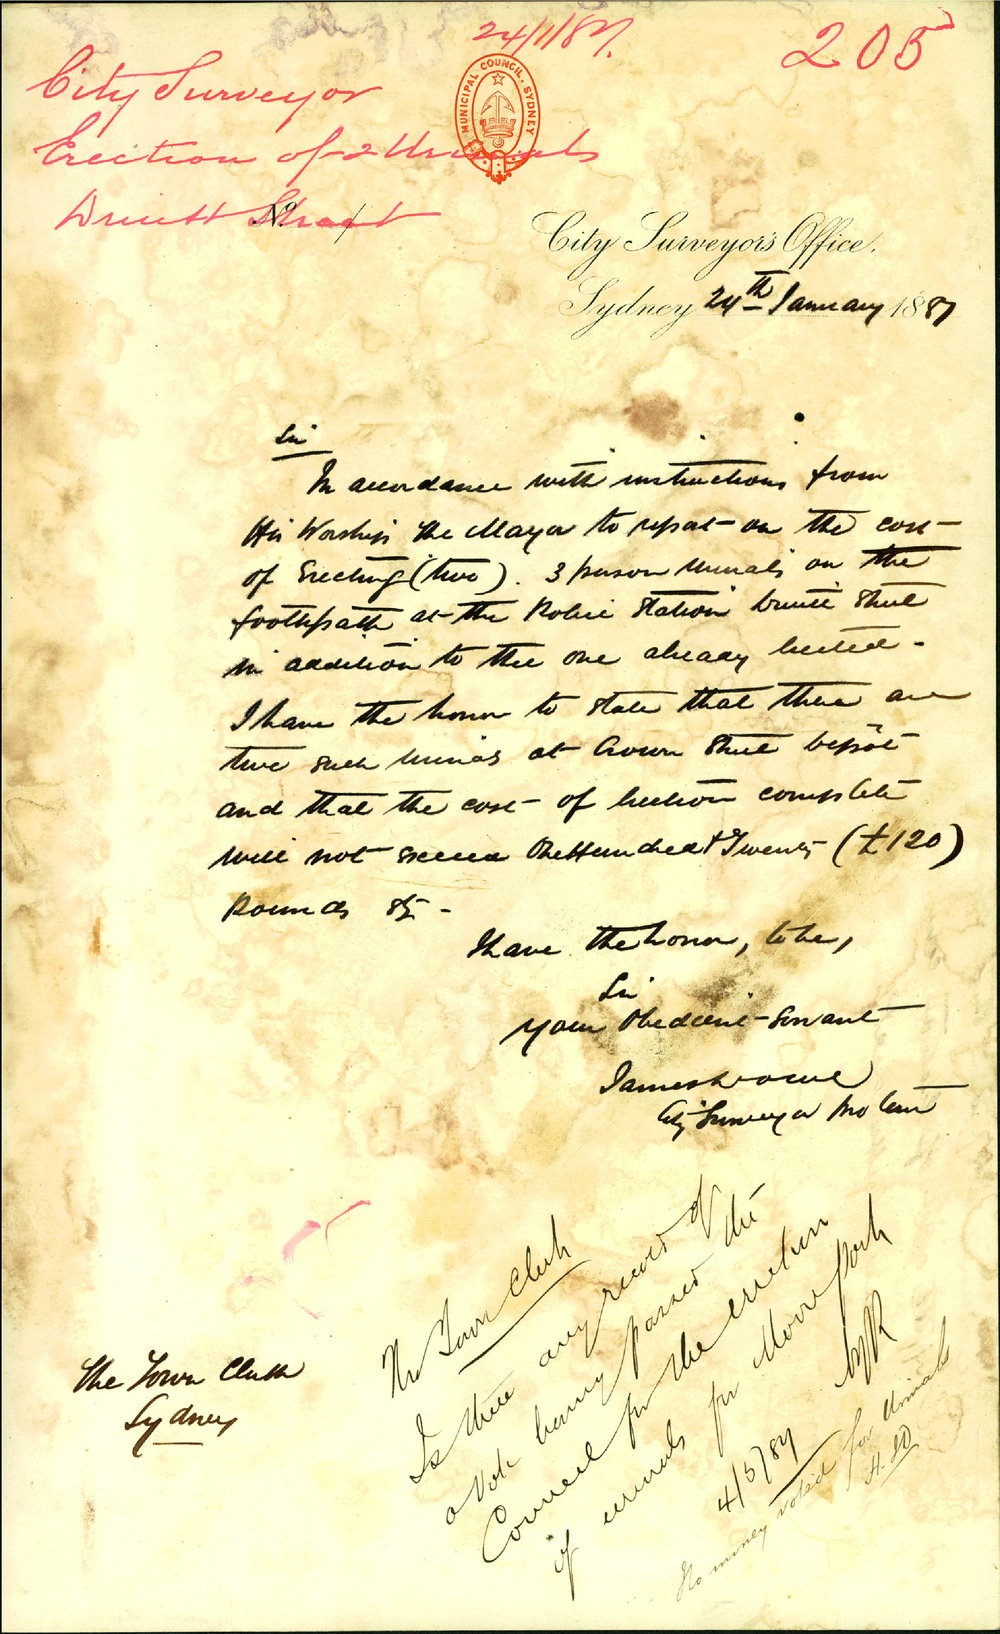 24/1/87.
205
City Surveyor
Erection of 2 Urinals
Druitt Street
MUNICIPAL COUNCIL. SYDNEY
No.
City Surveyor's Office.
Sydney 24th January 1887
Sir
In accordance with instructions from
His Worship the Mayor to report on the cost
of Erecting (two). 3 person Urinals on the
footpath at the Police Station Druitt Street
in addition to the one already Erected -
I have the honor to state that there are
two such Urinals at Crown Street Depôt
and that the cost of Erection complete
will not exceed One Hundred & Twenty (£120)
Pounds Stg -
I have the honor, to be,
Sir
Your Obedient Servant
James
City Surveyor Pro tem
The Town Clerk
Sydney
The Town Clerk
Is there any record of
a Vote having passed the
Council for the erection
of urinals for Moore Park
4/5/87
No money voted for Urinals